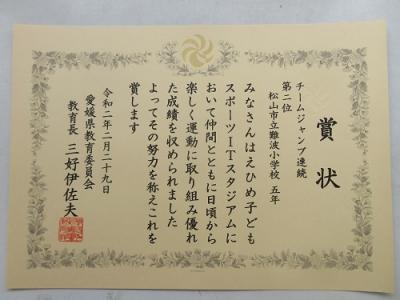 賞状
チームジャンプ連続
第二位
松山市立難波小学校 五年
みなさんはえひめ子ども
スポーツITスタジアムに
おいて仲間とともに日頃から
楽しく運動に取り組み優れ
た成績を収められました
よってその努力を称えこれを
賞します
令和二年二月二十九日
愛媛県教育委員会
教育長 三好伊佐夫